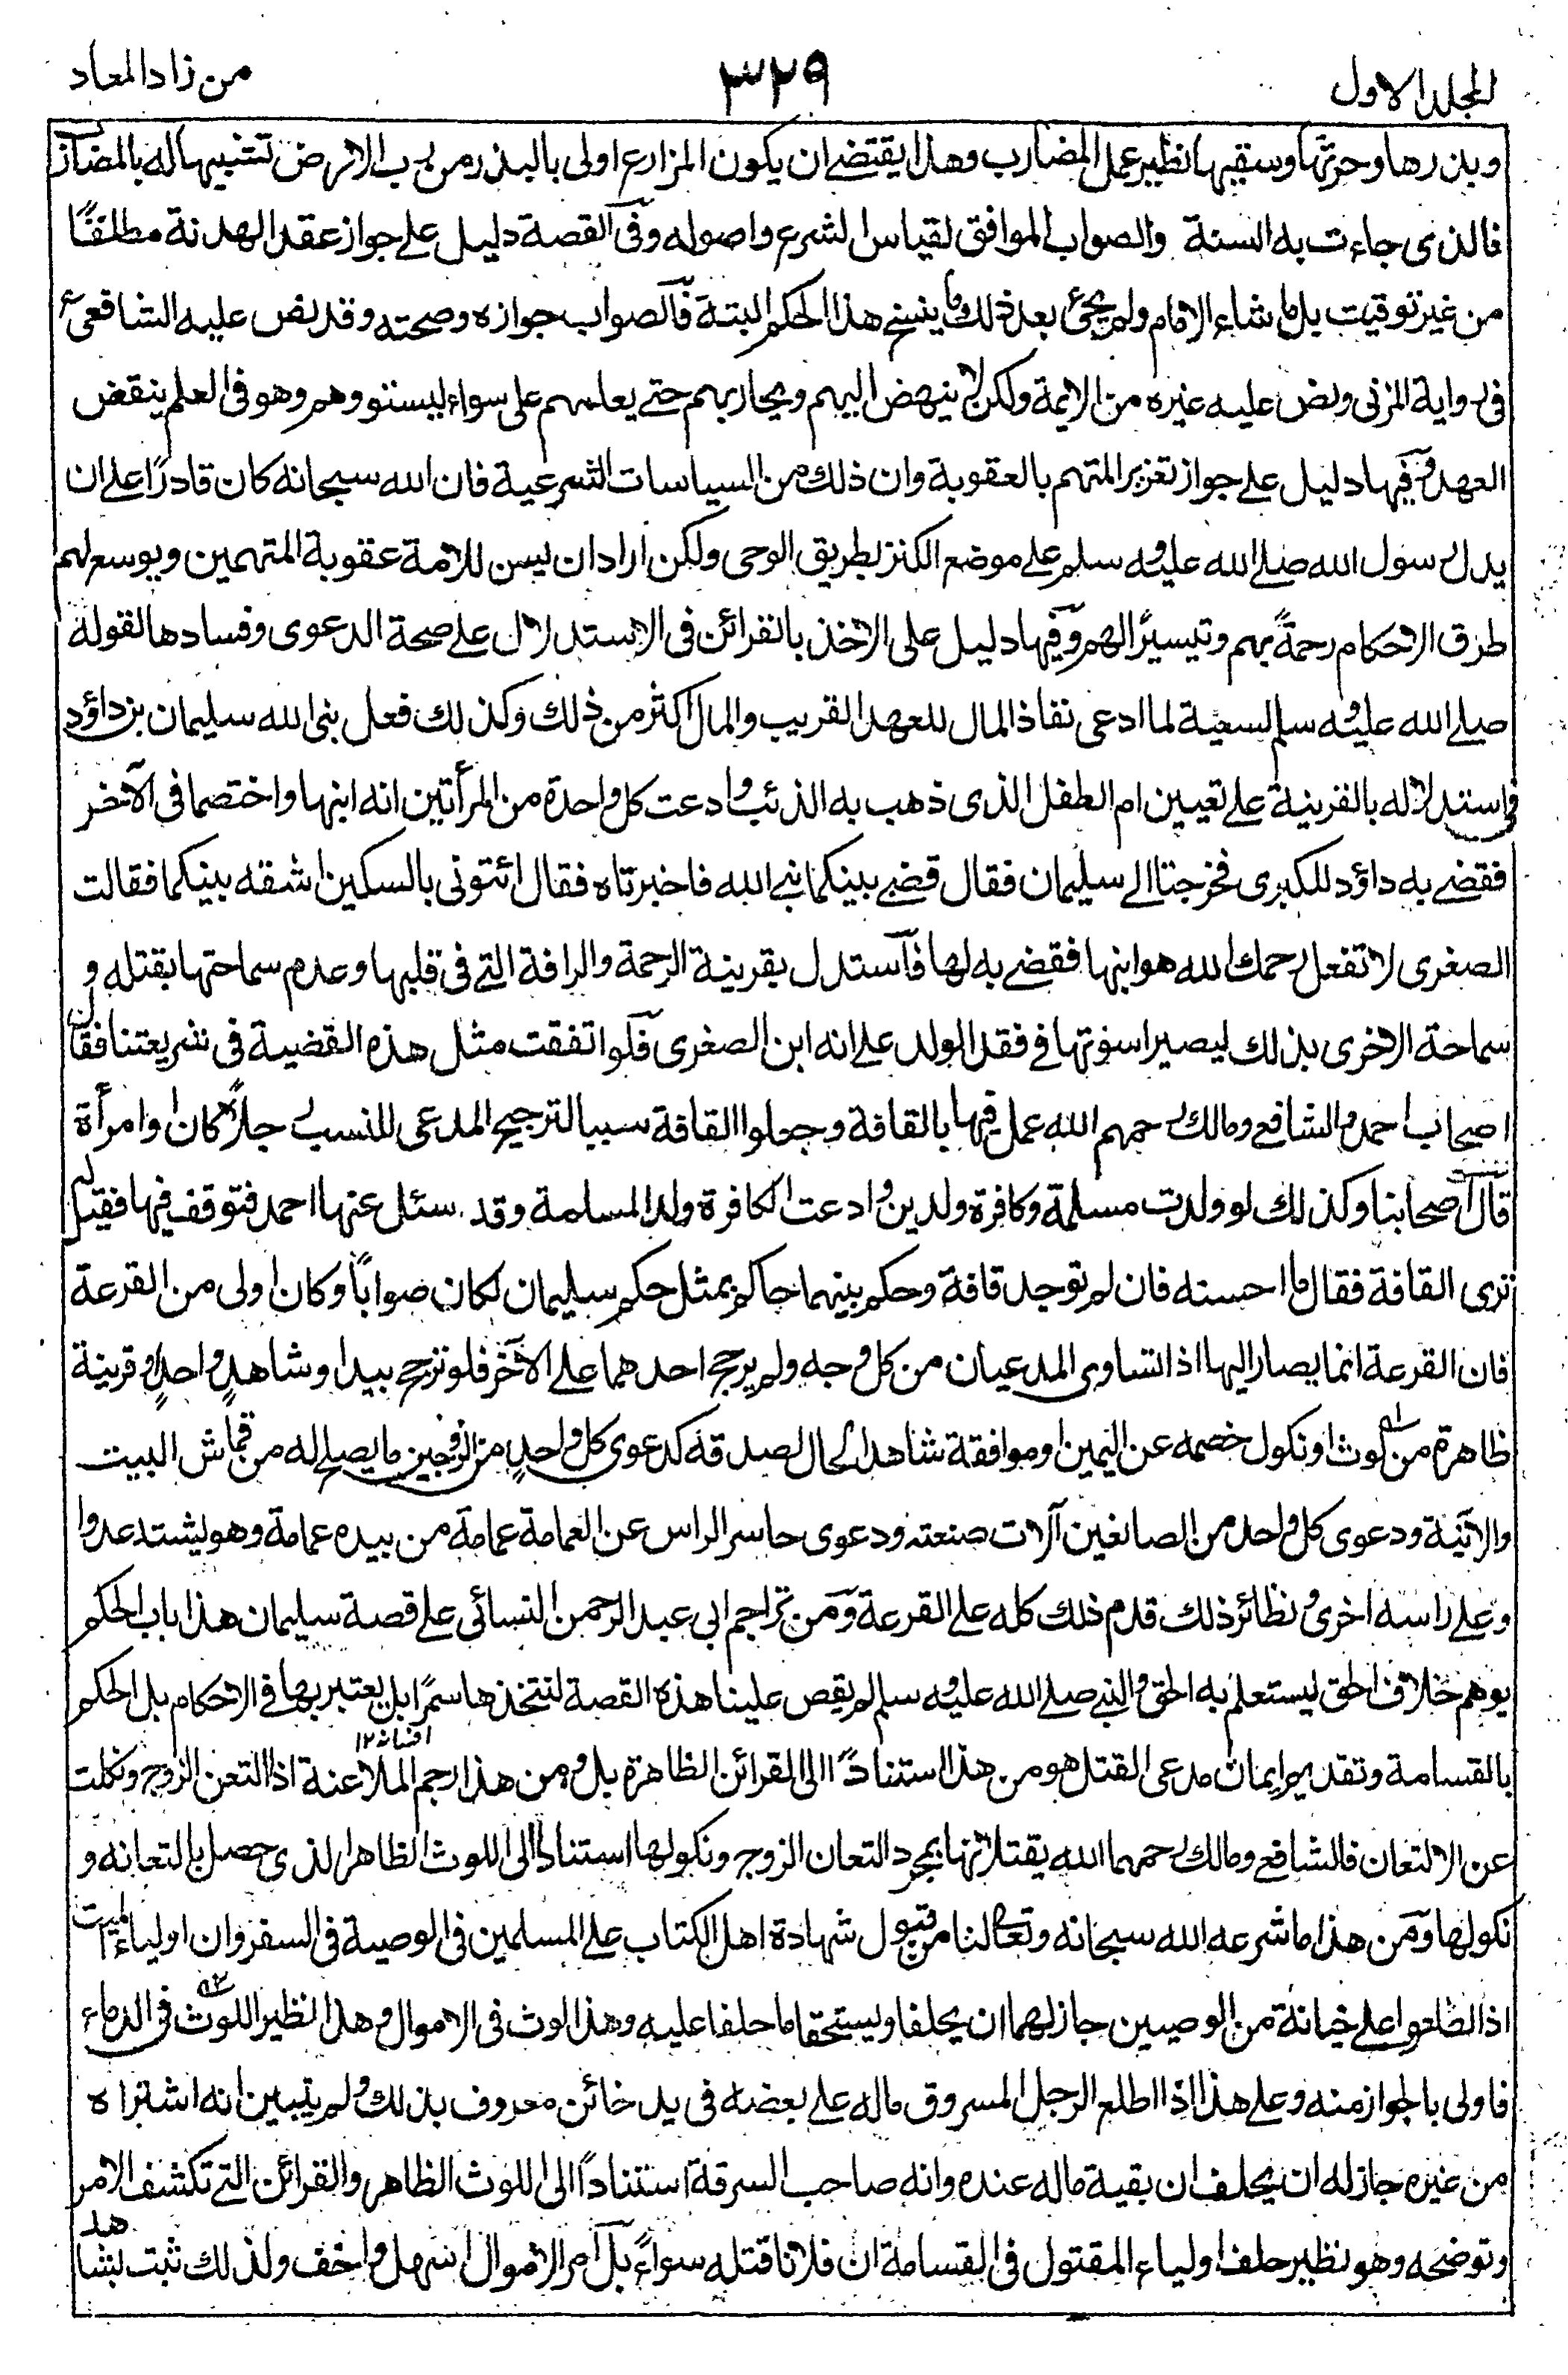 المجلد الاول
٣٢٩
من زاد المعاد
وبذرها وحرثها وسقيها نظير عمل المضارب وهذا يقتضے ان يكون المزارع اولى بالبذر من رب الارض تشبيها له بالمضارب
فالذى جاءت به السنة والصواب الموافق لقياس الشرع واصوله وفى القصة دليل علے جواز عقد الهدنة مطلقًا
من غير توقيت بل ما شاء الامام ولم يجئ بعد ذلك ما ينسخ هذا الحكم البتة فالصواب جوازه وصحته وقد نص عليه الشافعى
فى رواية المزنى ونص عليه غيره من الايمة ولكن لا ينهض اليهم ويحاربهم حتے يعلمهم على سواء ليستووهم وهو فى العلم ينقض
العهد وفيها دليل علے جواز تعزير المتهم بالعقوبة وان ذلك من السياسات الشرعية فان الله سبحانه كان قادرًا علے ان
يدل رسول الله صلے الله عليه وسلم علے موضع الكنز بطريق الوحى ولكن اراد ان يسن للامة عقوبة المتهمين ويوسع لهم
طرق الاحكام رحمةً بهم وتيسيرًا لهم وفيها دليل على الاخذ بالقرائن فى الاستدلال علے صحة الدعوى وفسادها لقوله
صلے الله عليه وسلم لسعية لما ادعى نفاذ المال للعهد القريب والمال اكثر من ذلك وكذلك فعل نبى الله سليمان بن داؤد
فى استدلاله بالقرينة علے تعيين ام الطفل الذى ذهب به الذئب وادعت كل واحدة من المرأتين انه ابنها واختصما فى الآخر
فقضے به داؤد للكبرى فخرجتا الے سليمان فقال قضے بينكما نبے الله فاخبرتاه فقال ائتونى بالسكين اشقه بينكما فقالت
الصغرى لا تفعل رحمك الله هو ابنها فقضے به لها فاستدل بقرينة الرحمة والرافة التے فى قلبها وعدم سماحتها بقتله و
سماحة الاخرى بذلك ليصير اسوتها فے فقد الولد علے انه ابن الصغرى فلو اتفقت مثل هذه القضية فى شريعتنا فقال
اصحاب احمد والشافعے ومالك رحمهم الله عمل فيها بالقافة وجعلوا القافة سببا لترجيح المدعى للنسب رجلًا كان او امرأة
قال اصحابنا وكذلك لو ولدت مسلمة وكافرة ولدين وادعت الكافرة ولد المسلمة وقد سئل عنها احمد فتوقف فيها فقيل له
ترى القافة فقال ما احسنه فان لم توجد قافة وحكم بينهما حاكم بمثل حكم سليمان لكان صوابًا وكان اولى من القرعة
فان القرعة انما يصار اليها اذا تساوى المدعيان من كل وجه ولم يرجح احدهما علے الآخر فلو ترجح بيد او شاهدٍ واحدٍ او قرينة
ظاهرة من لوث او نكول خصمه عن اليمين او موافقة شاهد الحال لصدقه كدعوى كل واحدٍ من الزوجين ما يصلح له من قماش البيت
والانية ودعوى كل واحد من الصانعين آلات صنعته ودعوى حاسر الراس عن العمامة عمامة من بيده عمامة وهو يشتد عدوا
وعلے راسه اخرى ونظائر ذلك قدم ذلك كله علے القرعة ومن تراجم ابى عبد الرحمن النسائى علے قصة سليمان هذا باب الحكم
يوهم خلاف الحق ليستعلم به الحق والنبے صلے الله عليه وسلم لم يقص علينا هذه القصة لنتخذها سمرًا بل يعتبر بها فے الاحكام بل الحكم
افسانه ١٢
بالقسامة وتقديم ايمان مدعى القتل هو من هذا استنادًا الى القرائن الظاهرة بل ومن هذا رجم الملاعنة اذا التعن الزوج ونكلت
عن الالتعان فالشافعے ومالك رحمهما الله يقتلانها بمجرد التعان الزوج ونكولها استنادا الى اللوث الظاهر الذى حصل بالتعانه و
نكولها ومن هذا ما شرعه الله سبحانه وتعالى لنا من قبول شهادة اهل الكتاب علے المسلمين فى الوصية فى السفر وان اولياء الميت
اذا اطلعوا علے خيانة من الوصيين جاز لهما ان يحلفا ويستحقا ما حلفا عليه وهذا لوث فى الاموال وهذا نظير اللوث فى الدماء
فاولى بالجواز منه وعلے هذا اذا اطلع الرجل المسروق ماله علے بعضه فى يد خائن معروف بذلك ولم يتبين انه اشتراه
من غيره جاز له ان يحلف ان بقية ماله عنده وانه صاحب السرقة استنادًا الى اللوث الظاهر والقرائن التے تكشف الامر
وتوضحه وهو نظير حلف اولياء المقتول فى القسامة ان فلانا قتله سواءً بل امر الاموال اسهل واخف ولذلك ثبت بشاهد